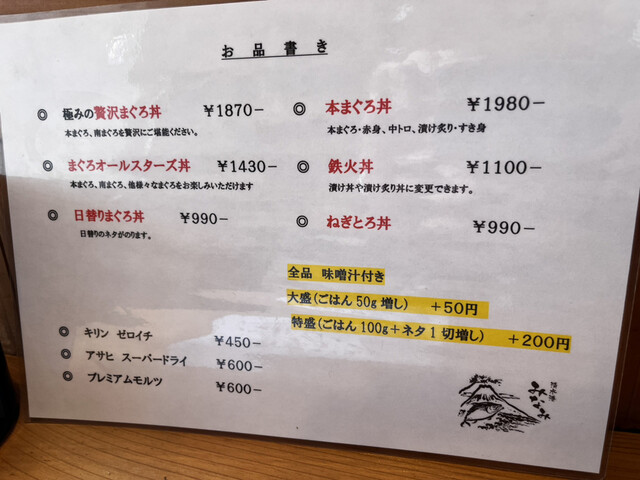 お品書き
◎ 極みの贅沢まぐろ丼 ¥1870-
本まぐろ、南まぐろを贅沢にご堪能ください。
◎ まぐろオールスターズ丼 ¥1430-
本まぐろ、南まぐろ、他様々なまぐろをお楽しみいただけます
◎ 日替りまぐろ丼 ¥990-
日替りのネタがのります。
◎ 本まぐろ丼 ¥1980-
本まぐろ・赤身、中トロ、漬け炙り・すき身
◎ 鉄火丼 ¥1100-
漬け丼や漬け炙り丼に変更できます。
◎ ねぎとろ丼 ¥990-
全品 味噌汁付き
大盛(ごはん50g増し) +50円
特盛(ごはん100g+ネタ1切増し) +200円
◎ キリン ゼロイチ ¥450-
◎ アサヒ スーパードライ ¥600-
◎ プレミアムモルツ ¥600-
清水港
みなみ